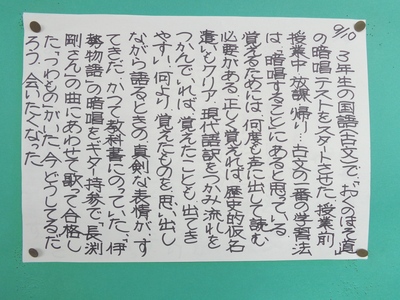 9/10　3年生の国語(古文)で、「おくのほそ道」
の暗唱テストをスタートさせた。授業前
授業中、放課、帰り…古文の一番の学習法
は、「暗唱すること」にあると思っている。
覚えるためには、何度も声に出して読む
必要がある。正しく覚えれば、歴史的仮名
遣いもクリア。現代語訳をつかみ、流れを
つかんでいれば、覚えたことも出てき
やすい。何より、覚えたものを、思い出し
ながら語るときの、真剣な表情が、す
てきだ。かつて、教科書にのっていた、「伊
勢物語」の暗唱をギター持参で「長渕
剛さん」の曲にあわせて歌って合格し
た、「つわもの」がいた。今、どうしてるだ
ろう。会いたくなった。